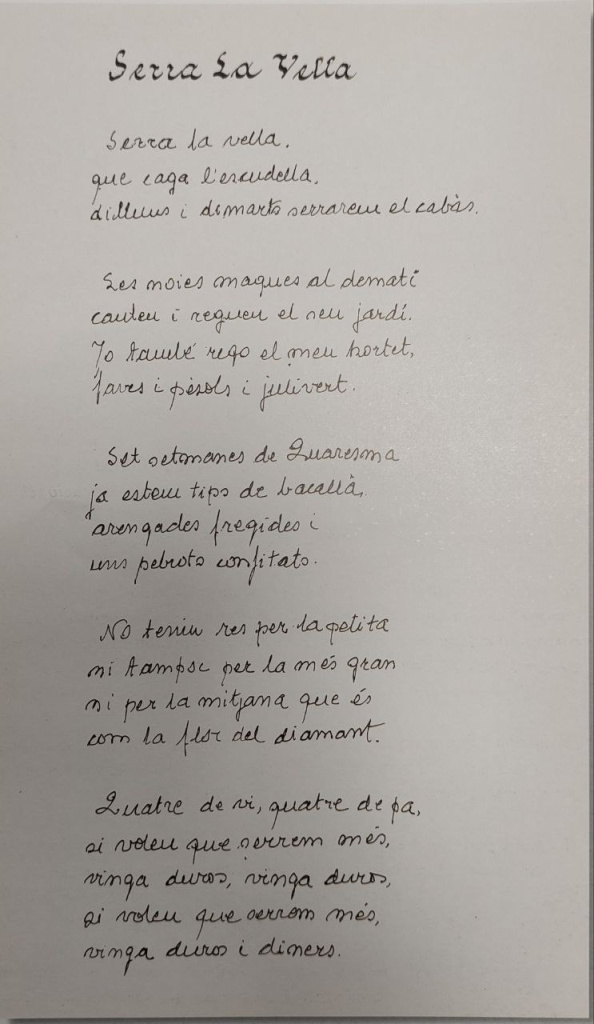 Serra La Vella
Serra la vella,
que caga l'escudella,
dilluns i dimarts serrarem el cabàs.
Les noies maques al dematí
canten i reguen el seu jardí.
Jo també rego el meu hortet,
faves i pèsols i julivert.
Set setmanes de Quaresma
ja estem tips de bacallà,
arengades fregides i
uns pebrots confitats.
No teniu res per la petita
ni tampoc per la més gran
ni per la mitjana que és
com la flor del diamant.
Quatre de vi, quatre de pa,
si voleu que serrem més,
vinga duros, vinga duros,
si voleu que serrem més,
vinga duros i diners.